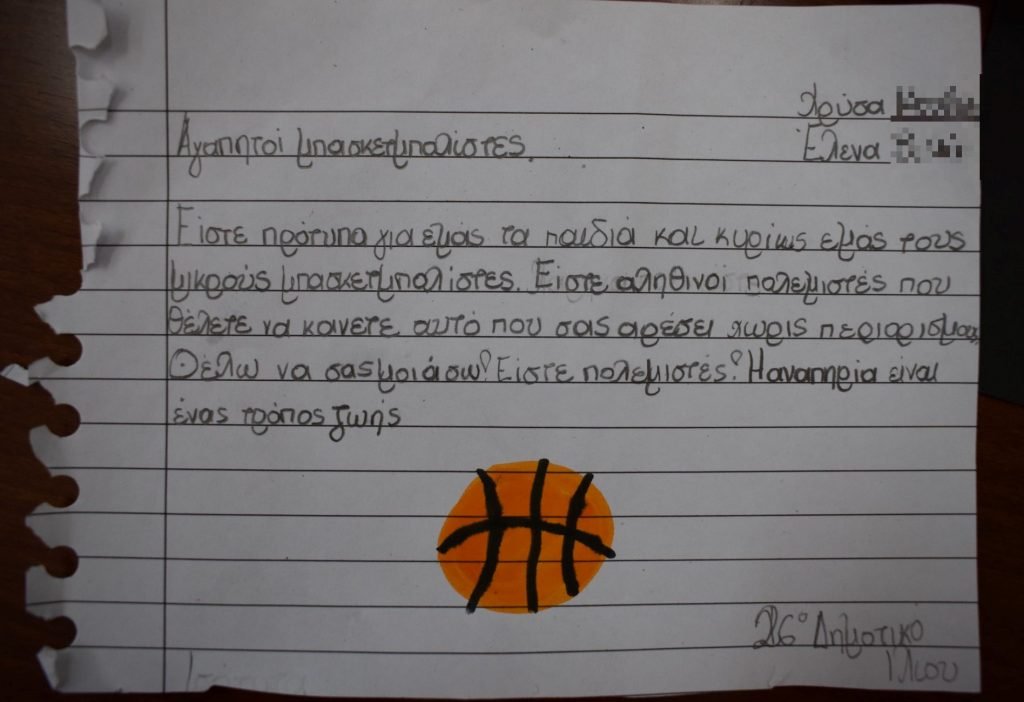 Χρύσα
Αγαπητοί μπασκετμπαλίστες.
Έλενα
Είστε πρότυπο για εμάς τα παιδιά και κυρίως εμάς τους
μικρούς μπασκετμπαλίστες. Είστε αληθινοί πολεμιστές που
θέλετε να κάνετε αυτό που σας αρέσει χωρίς περιορισμούς
Θέλω να σας μοιάσω! Είστε πολεμιστές! Η αναπηρία είναι
ένας τρόπος ζωής
26° Δημοτικο
Ιλιου